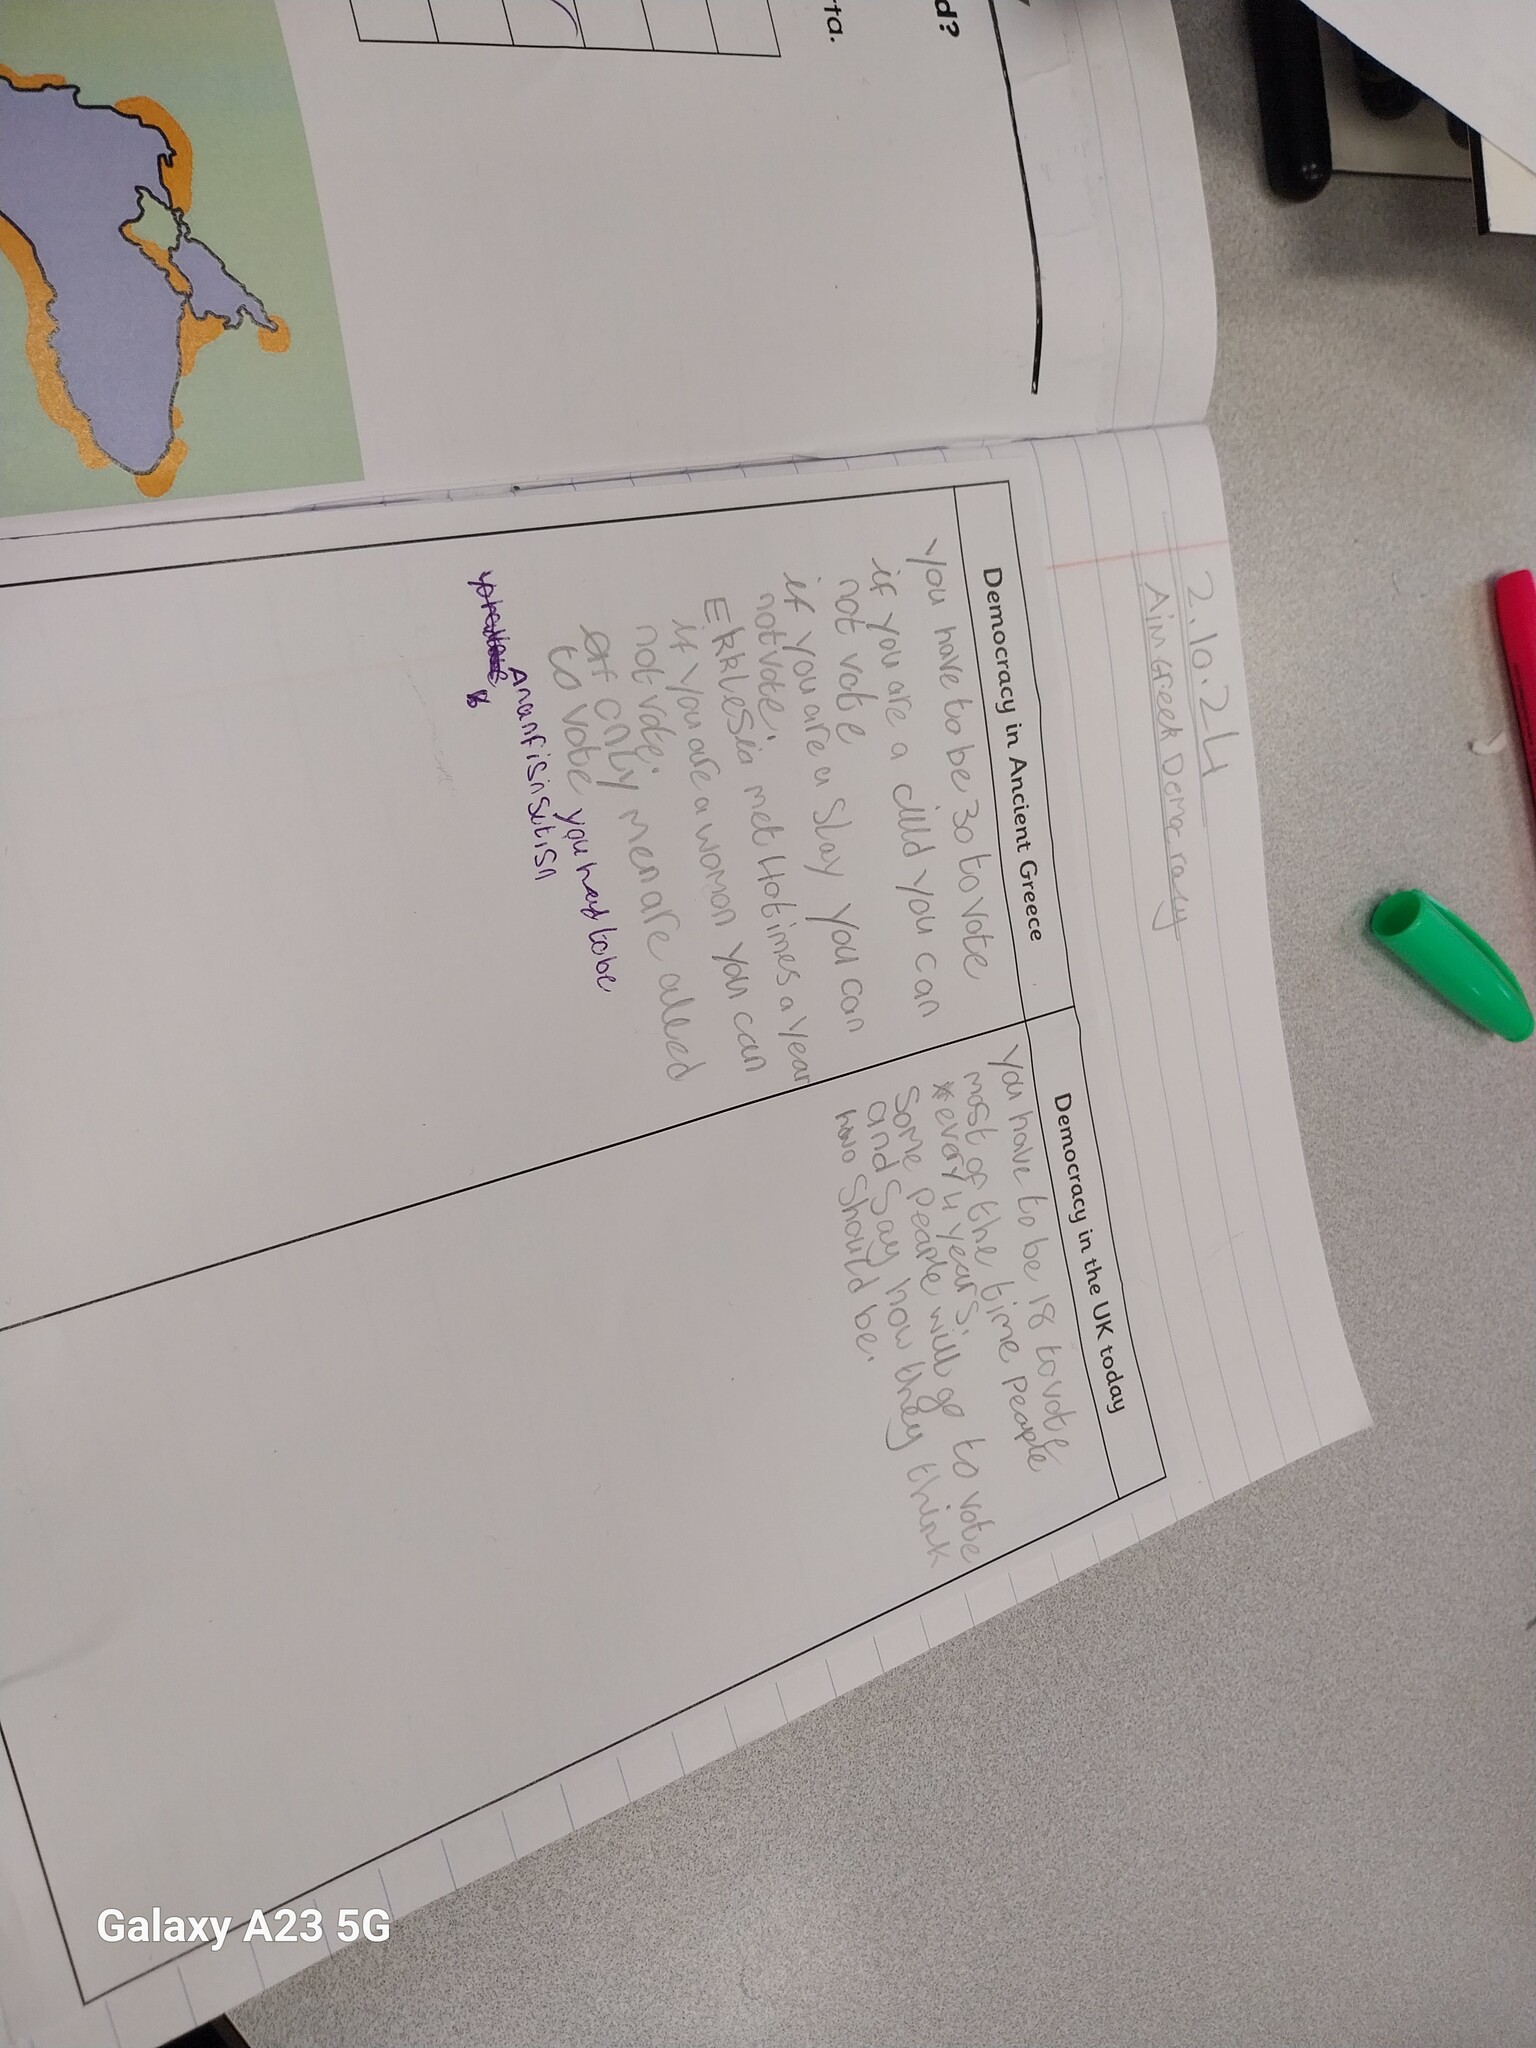 d?
rta.
2.10.24
Aim Greek Democracy
Democracy in Ancient Greece
You have to be 30 to vote
if you are a child you can
not vote
if you are a slay you can
not vote.
Ekklesia met 40 times a year
if you are a woman you can
not vote.
only men are alled
to vote you had to be
Democracy in the UK today
You have to be 18 to vote
most of the time people
every 4 years.
some people will go to vote
and say how they think
should be.
Galaxy A23 5G